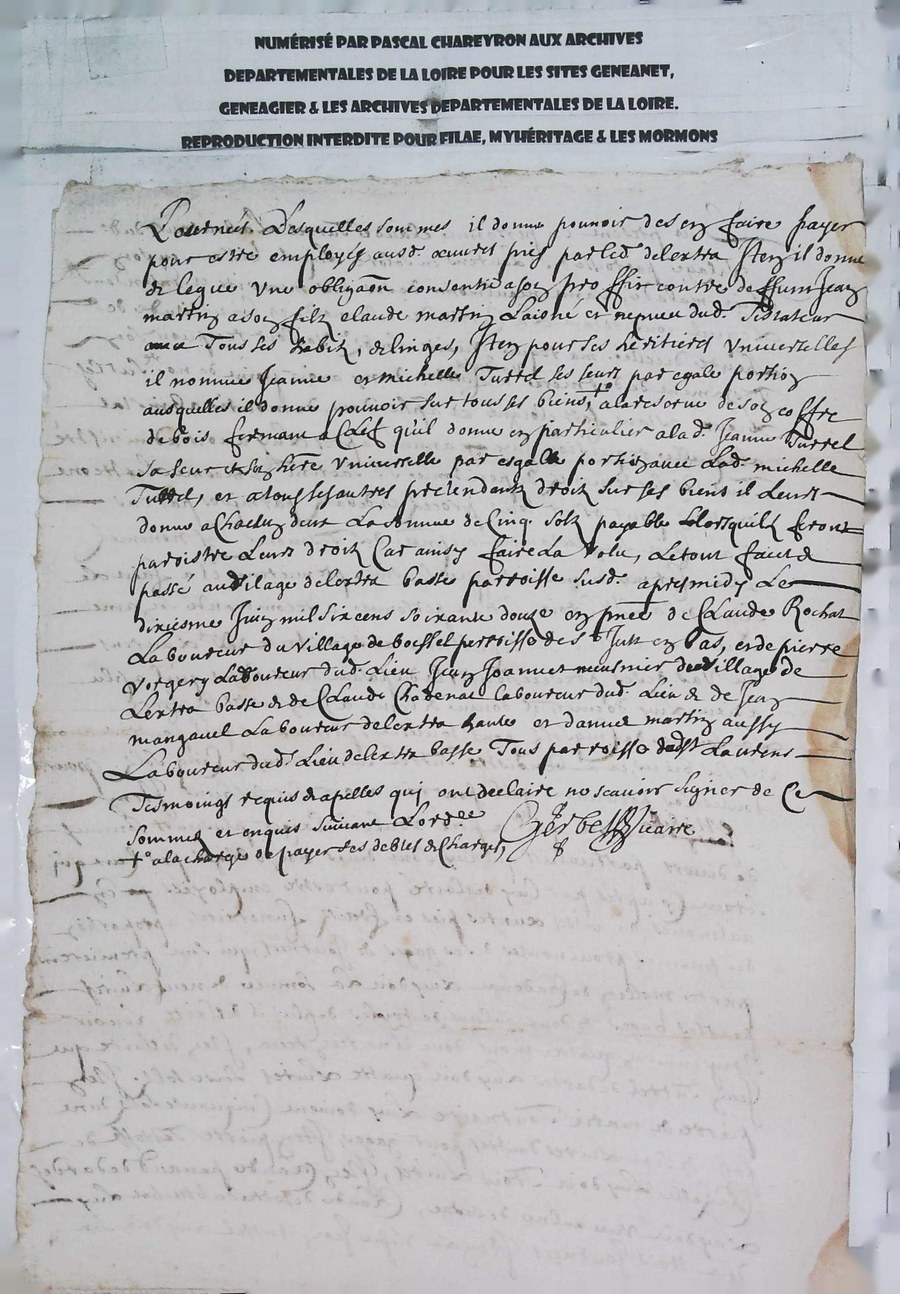 NUMÉRISÉ PAR PASCAL CHAREYRON AUX ARCHIVES
DEPARTEMENTALES DE LA LOIRE POUR LES SITES GENEANET,
GENEAGIER & LES ARCHIVES DEPARTEMENTALES DE LA LOIRE.
REPRODUCTION INTERDITE POUR FILAE, MYHÉRITAGE & LES MORMONS
Desquelles sommes il donne pouvoir des en faire payer
pour estre employés ausd. œuvres pies par led. delextra Item il donne
& legue une obligaon consentie a son proffit contre deffunt Jean
martin a son filz claude martin Laisné et nepveu dud. Testateur
avec Tous ses habitz, & linges, Item pour ses heritieres Universelles
il nomme Jeanne et michelle Turrel ses seurs par egale portion
ausquelles il donne pouvoir sur tous ses biens, † a la reserve de son coffre
de bois fermant a Clef qu'il donne en particulier a lad. Jeanne Turrel
sa seur et son hère Universelle par esgalle portion avec Lad. michelle
Turrel, et a tous ses autres prétendantz droit sur ses biens il Leurs
donne a Chacun deux La somme de Cinq solz payable Lorsquilz feront
paroistre Leurs droitz Car ainsy faire La volu, Le tout faict &
passé au vilage delextra basse parroisse susd. apres midy Le
dixiesme Juin mil six cens soixante douze en pnce de Claude Rochat
Laboureur du village de boessel perroisse de st Just en bas, et de pierre
vorgery Laboureur dud. Lieu Jean Joannet meusnier du village de
Lextra basse & de Claude Chadenat laboureur dud. Lieu & de Jean
mangavel Laboureur delextra haute et daniel martin aussy
Laboureur dud. Lieu delextra basse Tous parroisse dudt st Laurens
Tesmoings requis & apelles qui ont declaire ne scavoir signer de Ce
sommes et enquis suivant Lord.ce
vicaire
†° a la charge de payer ses debtes & Charges,